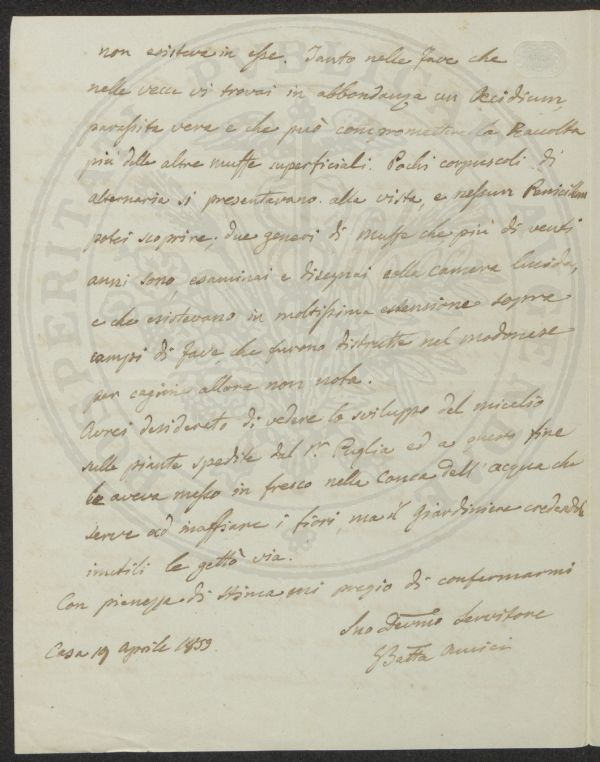 non esisteva in esse. Tanto nelle fave che
nelle vecce vi trovai in abbondanza un Oecidium,
parassita vero e che può compromettere la Raccolta
più delle altre muffe superficiali. Pochi corpuscoli di
alternaria si presentavano alla vista, e nessun Penicillum
potei scoprire; due generi di muffe che più di venti
anni sono esaminai e disegnai colla Camera lucida,
e che esistevano in moltissima estensione sopra
campi di fave, che furono distrutte nel modonese
per cagione allora non nota.
Avrei desiderato di vedere lo sviluppo del micelio
sulle piante spedite dal Sr. Puglia ed a questo fine
le aveva messo in fresco nella Conca dell'acqua che
serve ad inaffiare i fiori, ma il giardiniere credendole
inutili le gettò via.
Con pienezza di stima mi pregio di confermarmi
Suo Devmo Servitore
GBatta Amici
Casa 19 Aprile 1859.
PROSPERITATI PUBLICAE AUGENDAE